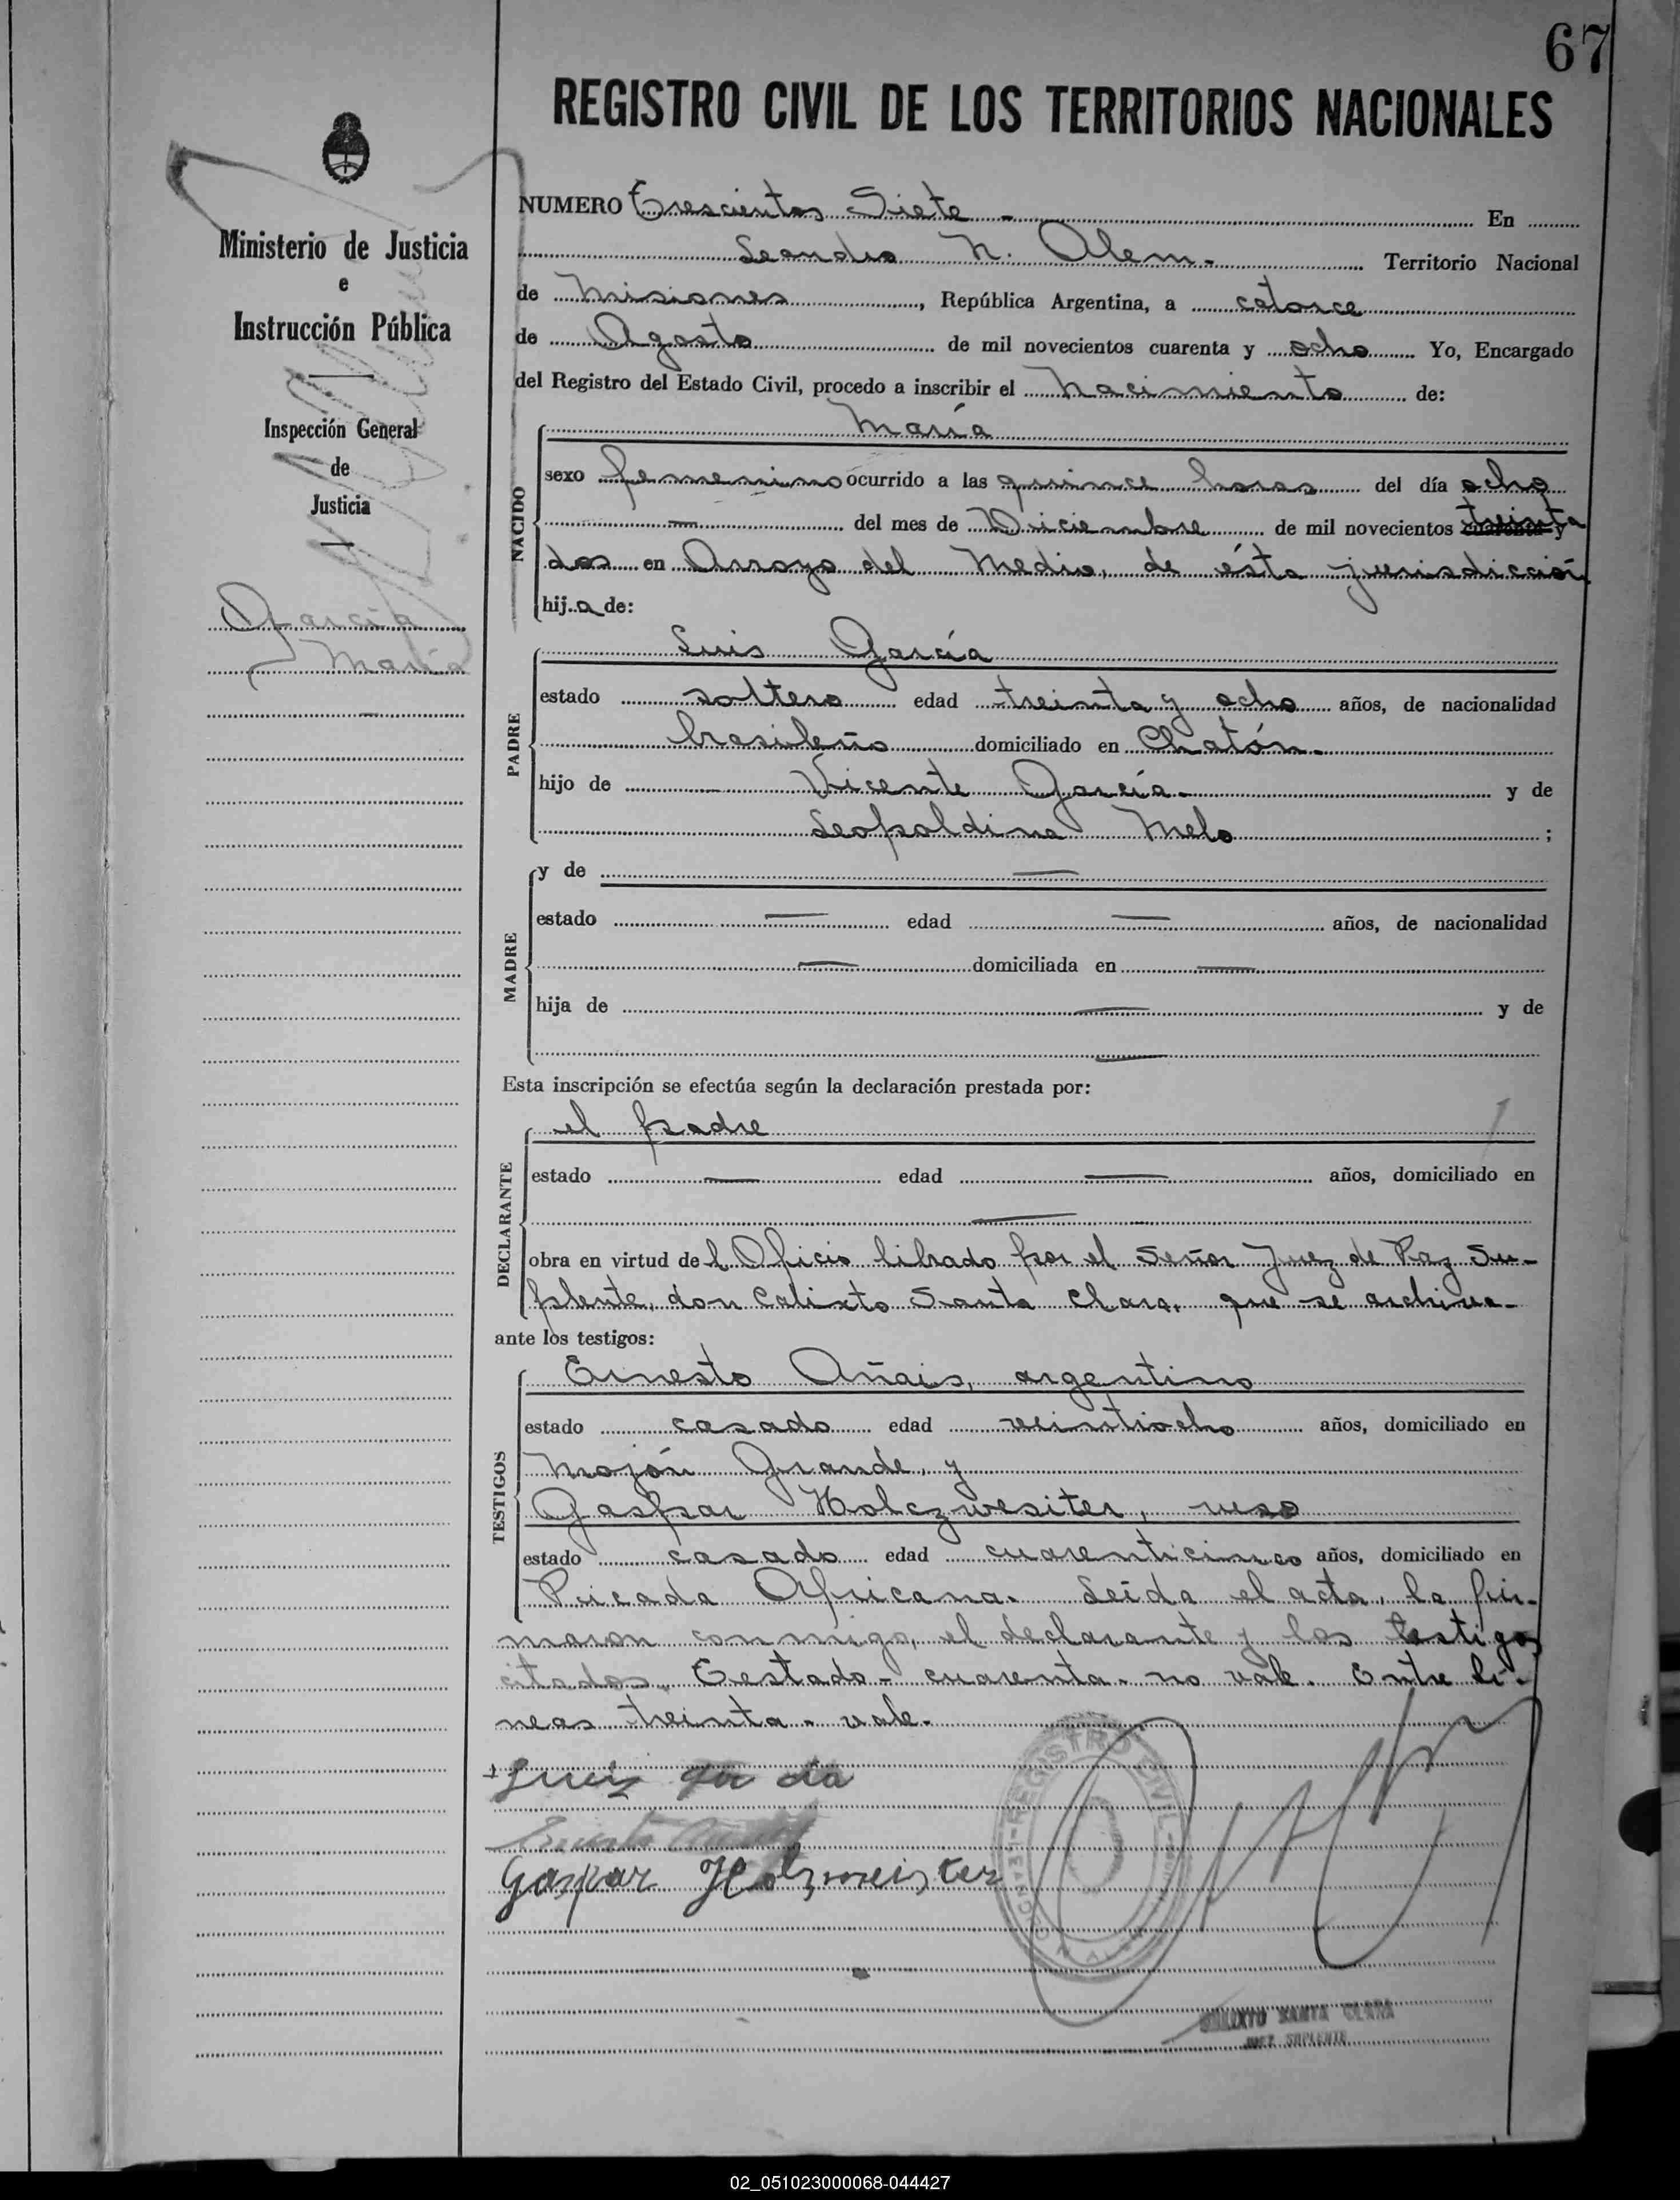 67
REGISTRO CIVIL DE LOS TERRITORIOS NACIONALES
Ministerio de Justicia
e
Instrucción Pública
Inspección General
de
Justicia
García
María
NUMERO Trescientos Siete - En
Leandro N. Alem - Territorio Nacional
de Misiones, República Argentina, a catorce
de Agosto de mil novecientos cuarenta y ocho Yo, Encargado
del Registro del Estado Civil, procedo a inscribir el nacimiento de:
María
NACIDO
sexo femenino ocurrido a las quince horas del día ocho
— del mes de Diciembre de mil novecientos cuarenta treinta y
dos en Arroyo del Medio, de ésta jurisdicción
hija de:
Luis García
PADRE
estado soltero edad treinta y ocho años, de nacionalidad
brasileño domiciliado en Chatón.
hijo de Vicente García - y de
Leopoldina Melo ;
MADRE
y de —
estado — edad — años, de nacionalidad
— domiciliada en —
hija de — y de
—
Esta inscripción se efectúa según la declaración prestada por:
el padre
DECLARANTE
estado — edad — años, domiciliado en
—
obra en virtud del Oficio librado por el Señor Juez de Paz Su-
plente, don Calixto Santa Clara, que se archiva-
ante los testigos:
Ernesto Añais, argentino
TESTIGOS
estado casado edad veintiocho años, domiciliado en
Mojón Grande, y
Gaspar Holczwesiter, ruso
estado casado edad cuarenticinco años, domiciliado en
Picada Africana. Leída el acta, la fir-
maron conmigo, el declarante y los testigos
citados. Testado - cuarenta - no vale. Entre lí-
neas treinta - vale.
Luiz
Gaspar Holzmeister
REGISTRO CIVIL
CALIXTO SANTA CLARA
JUEZ SUPLENTE
02_051023000068-044427